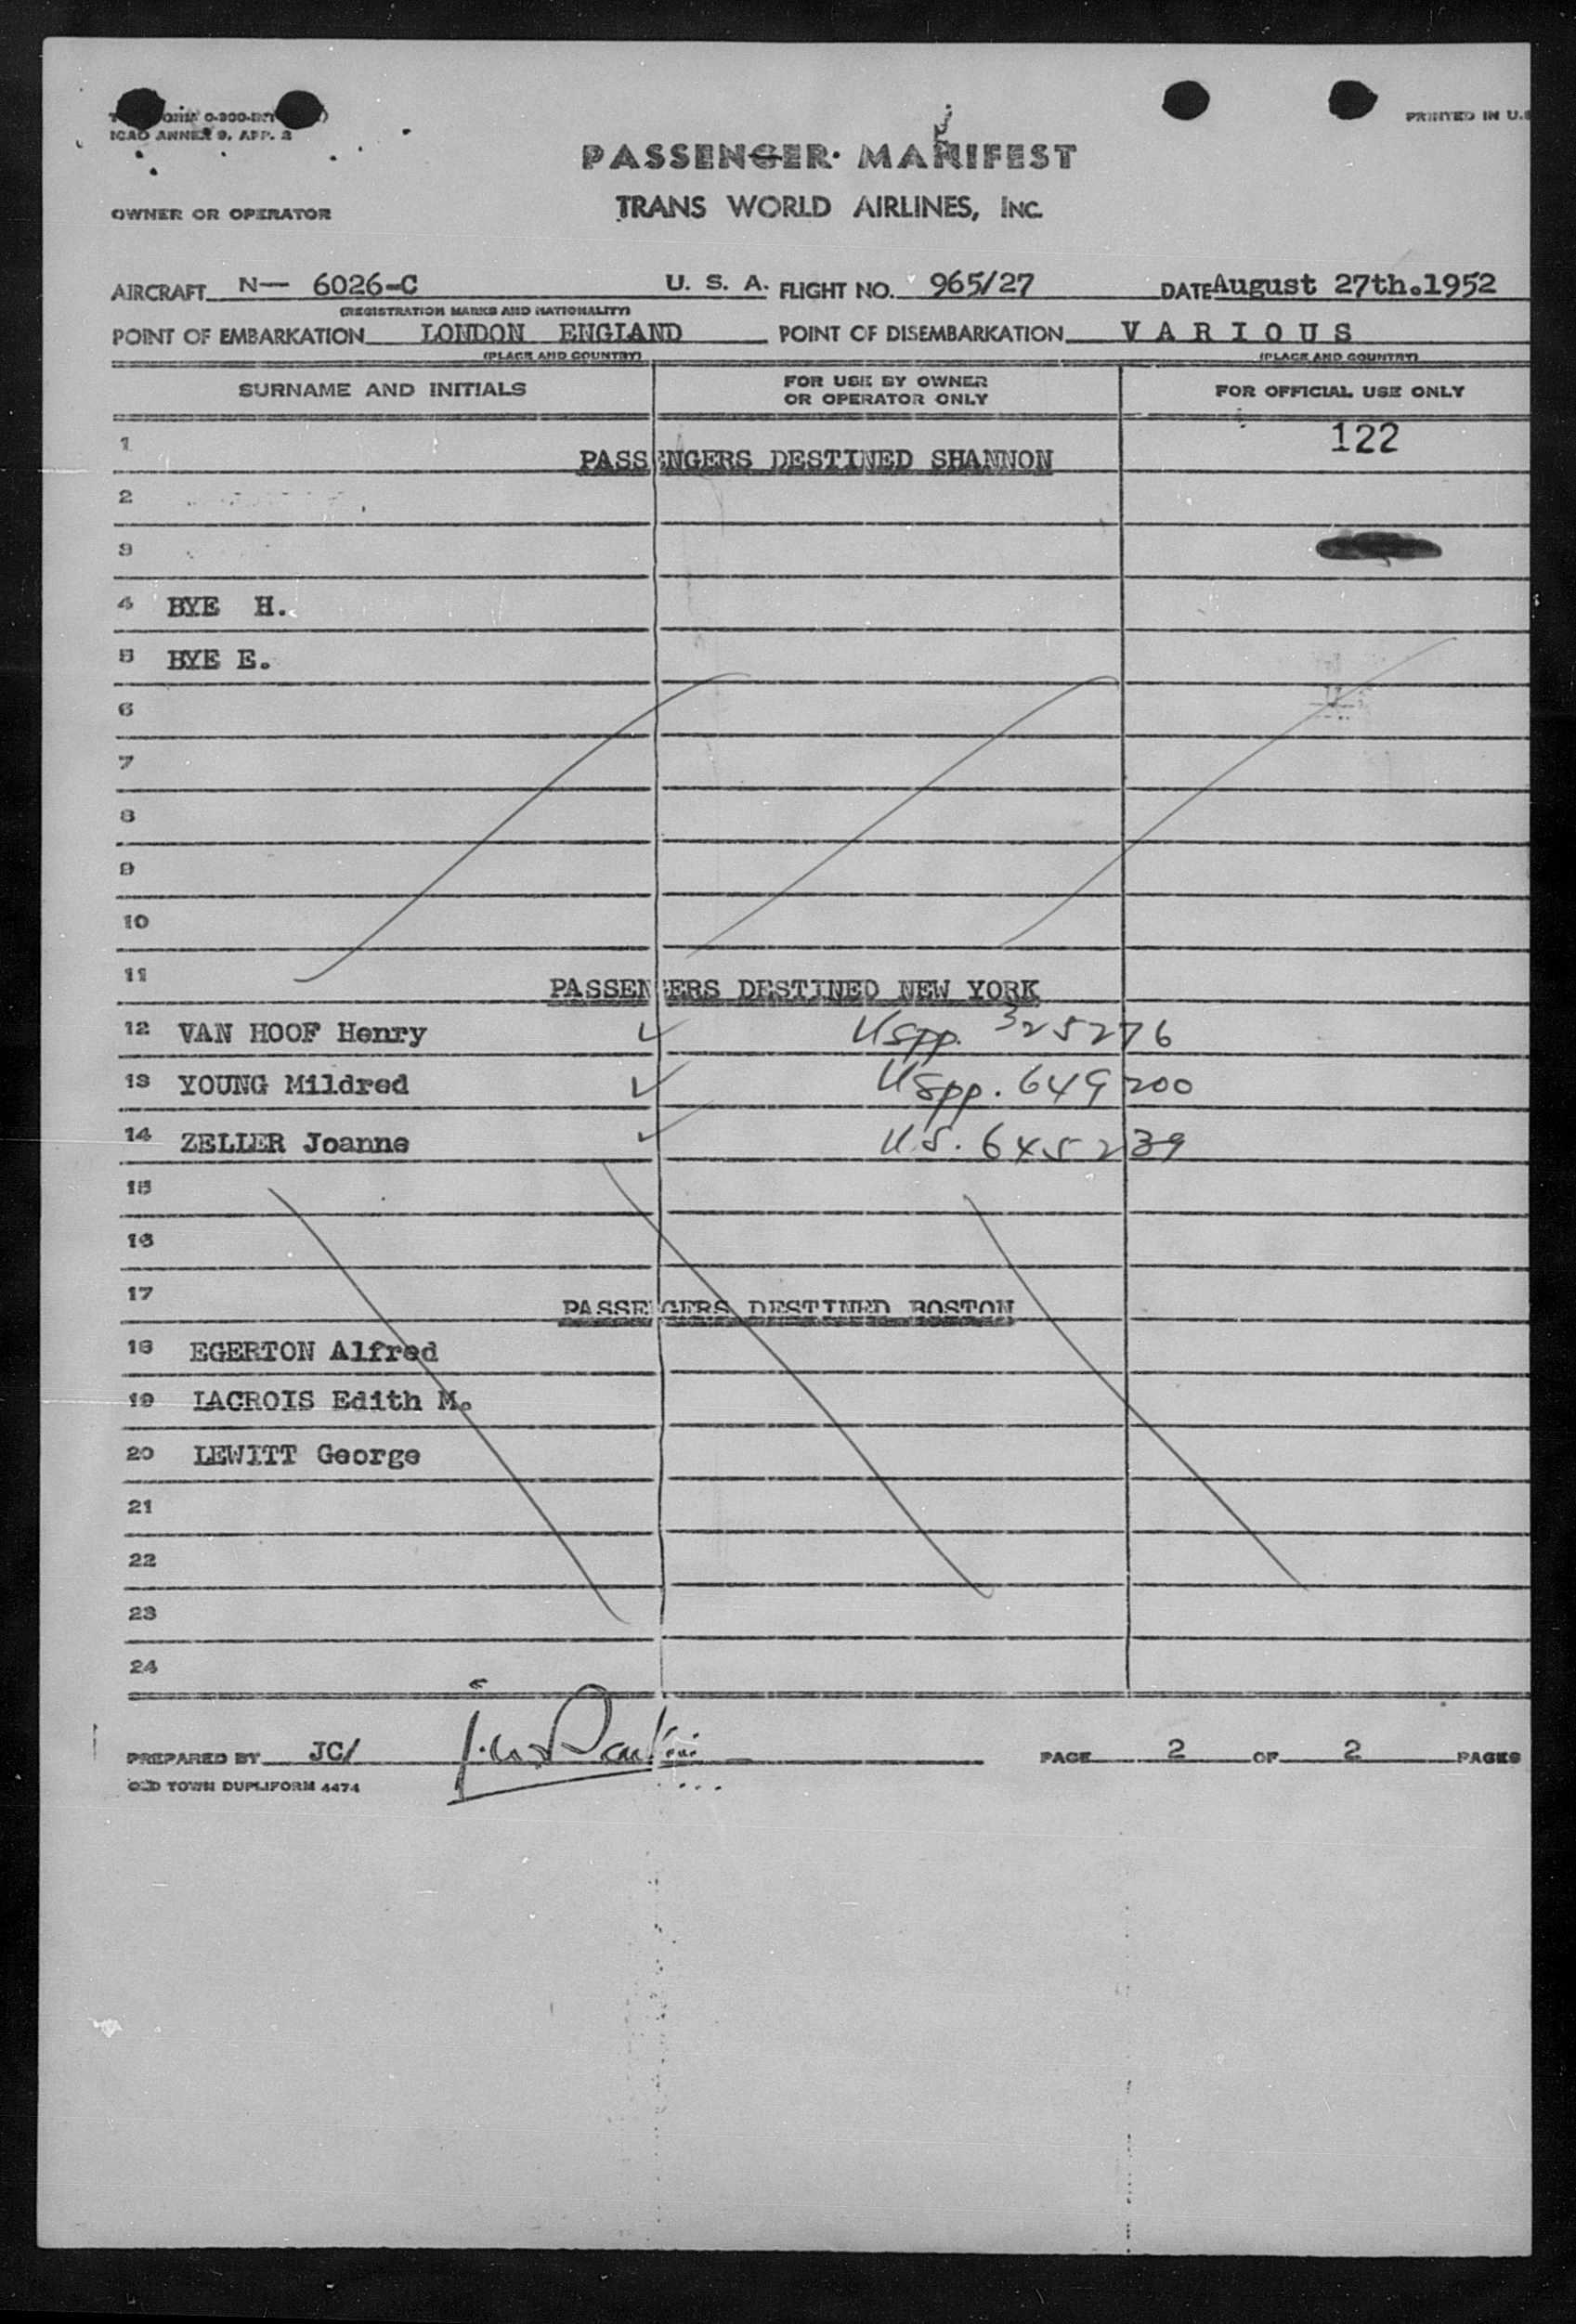 FORM 0-900-INT
ICAO ANNEX 9, APP. 2
PRINTED IN U.S
PASSENGER MANIFEST
OWNER OR OPERATOR TRANS WORLD AIRLINES, INC.
AIRCRAFT N— 6026-C U. S. A. FLIGHT NO. 965/27 DATE August 27th.1952
(REGISTRATION MARKS AND NATIONALITY)
POINT OF EMBARKATION LONDON ENGLAND POINT OF DISEMBARKATION V A R I O U S
(PLACE AND COUNTRY) (PLACE AND COUNTRY)
SURNAME AND INITIALS FOR USE BY OWNER OR OPERATOR ONLY FOR OFFICIAL USE ONLY
122
1 PASSENGERS DESTINED SHANNON
2
3
4 BYE H.
5 BYE E.
6
7
8
9
10
11 PASSENGERS DESTINED NEW YORK
12 VAN HOOF Henry ✓ USpp. 325276
13 YOUNG Mildred ✓ USpp. 649200
14 ZELLER Joanne ✓ U.S. 645239
15
16
17 PASSENGERS DESTINED BOSTON
18 EGERTON Alfred
19 LACROIS Edith M.
20 LEWITT George
21
22
23
24
PREPARED BY JC/ PAGE 2 OF 2 PAGES
OLD TOWN DUPLIFORM 4474